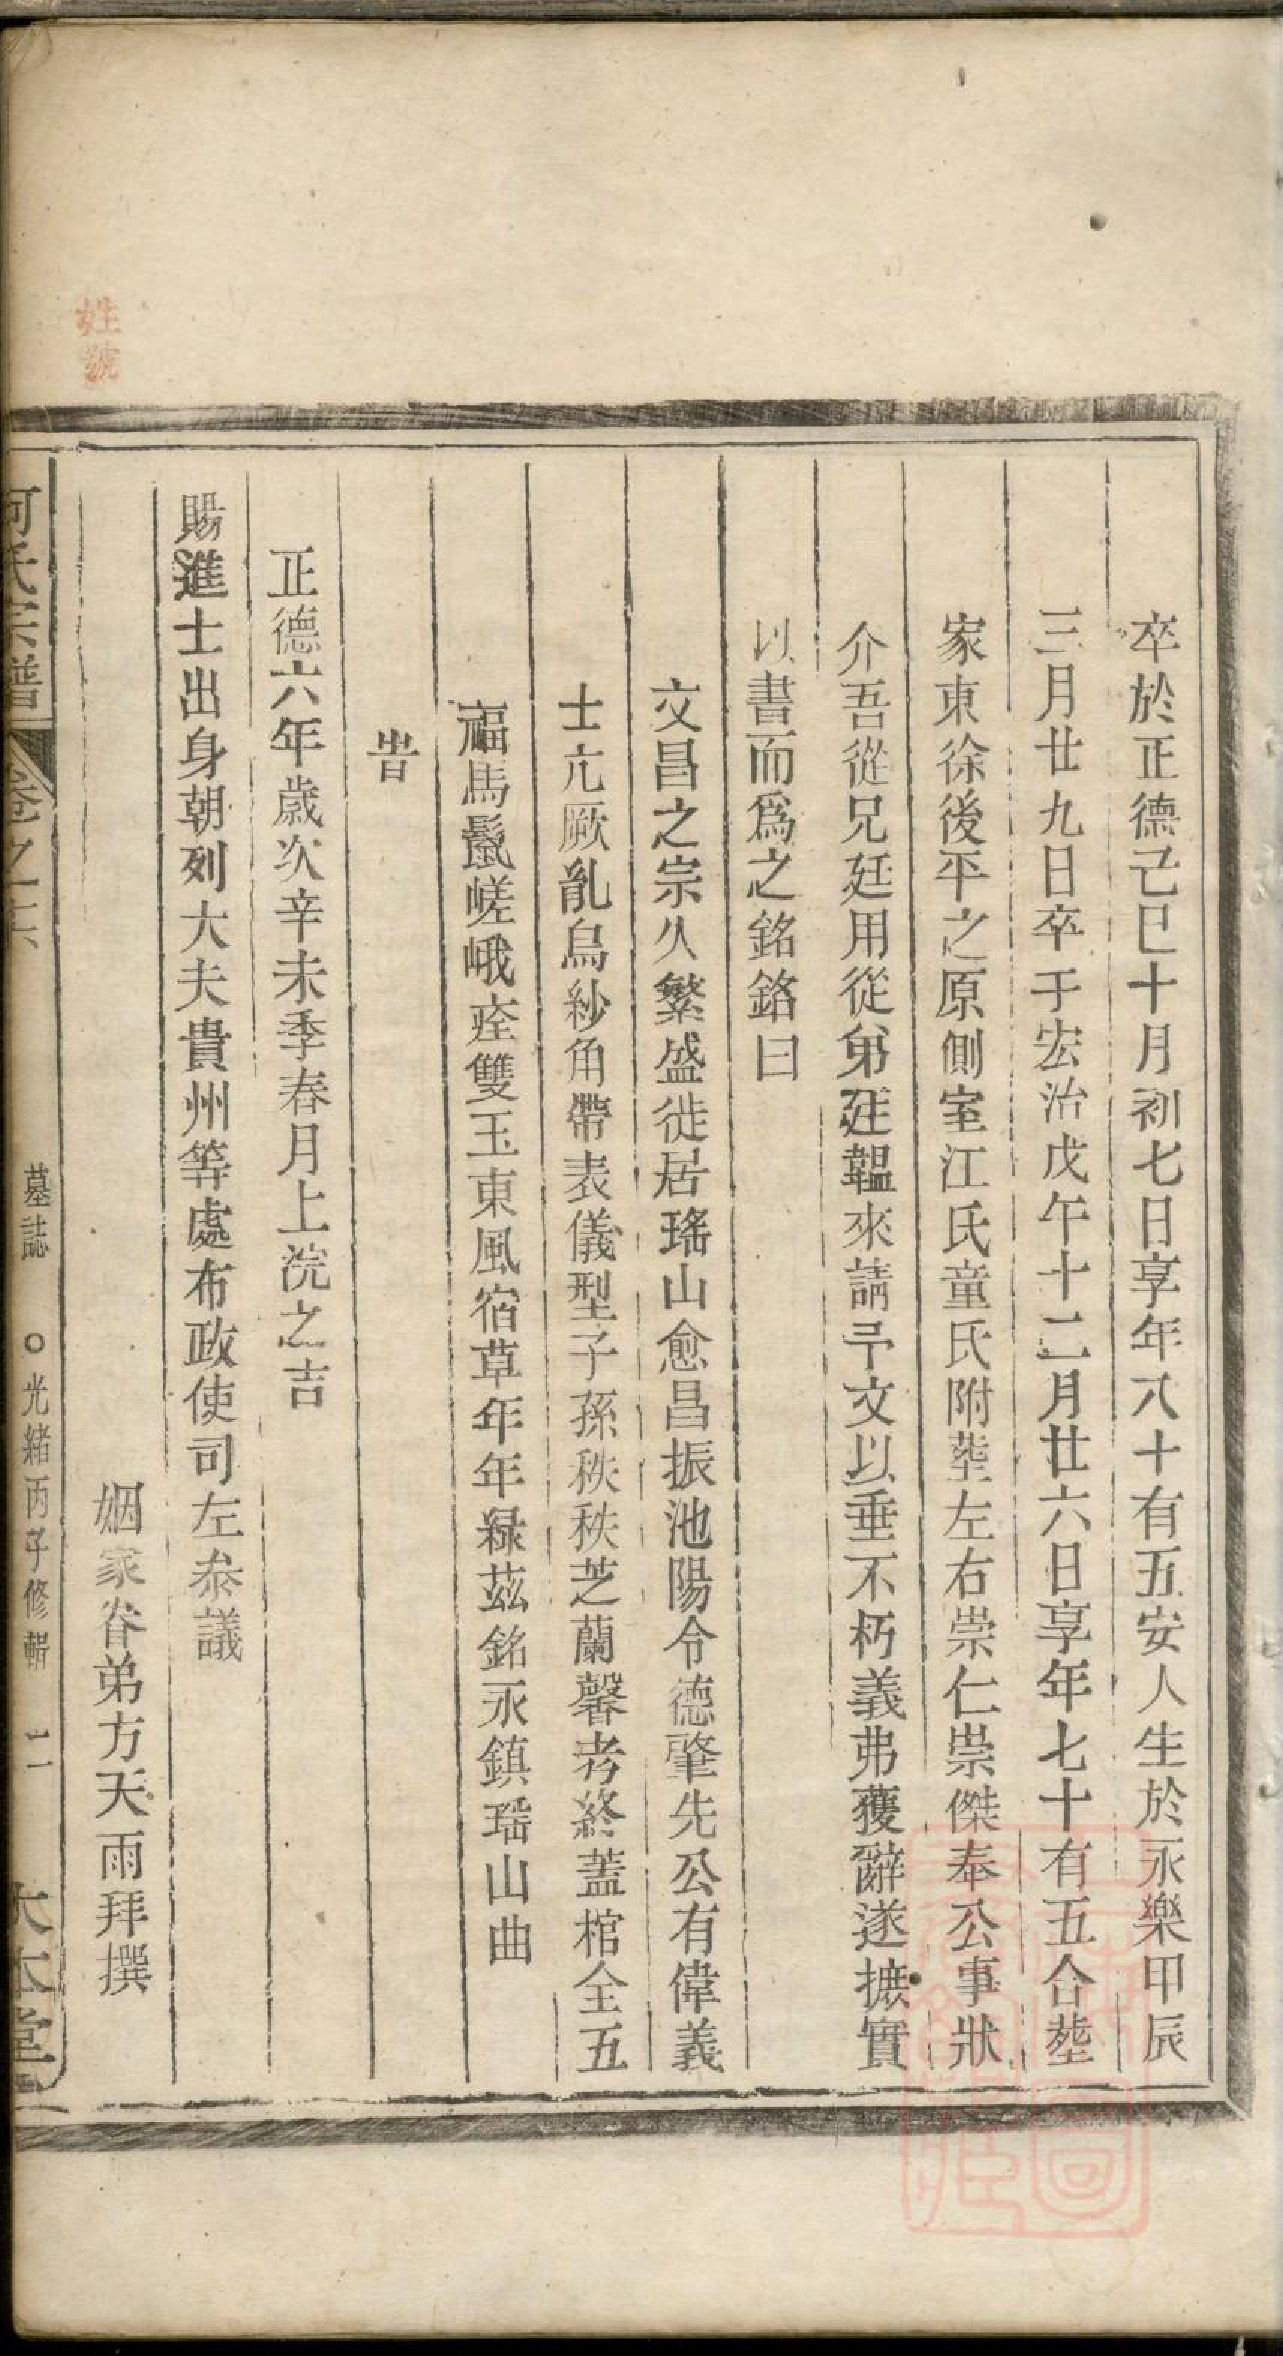 卒於正德己巳十月初七日享年八十有五安人生於永樂甲辰
三月廿九日卒于宏治戊午十二月廿六日享年七十有五合塟
家東徐後平之原側室江氏童氏附塟左右崇仁崇傑奉公事狀
介吾從兄廷用從弟廷韞來請予文以垂不朽義弗獲辭遂摭實
以書而爲之銘銘曰
文昌之宗久繁盛徙居瑤山愈昌振池陽令德肇先公有偉義
士亢厥亂烏紗角帶表儀型子孫秩秩芝蘭馨考終蓋棺全五
福馬鬛嵯峨瘞雙玉東風宿草年年緑茲銘永鎮瑤山曲
旹
正德六年歲次辛未季春月上浣之吉
賜進士出身朝列大夫貴州等處布政使司左叅議
姻家眷弟方天雨拜撰
何氏宗譜 卷之十六 墓誌 ○光緒丙子修輯 二 大本堂
姓號